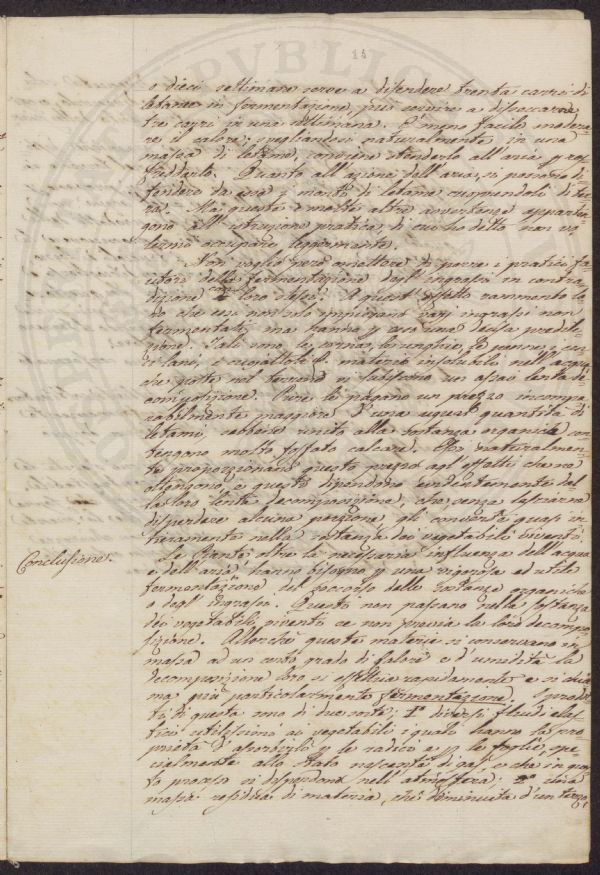 15
o dieci settimane serve a difendere trenta carri di
letame in fermentazione, può servire a disseccarne
tre carri in una settimana. È meno facile modera=
re il calore; svegliandosi naturalmente in una
massa di letame, conviene stenderlo all'aria, e raf=
freddarlo. Quanto all'azione dell'aria, si possono di=
fendere da essa i monti di letame cuoprendoli di ter=
ra. Ma queste e molte altre avvertenze apparten=
gono all'istruzione pratica, di cui ho detto non vo=
lermi occupare leggermente.
Non voglio però omettere di porre i pratici fau=
tori della fermentazione degl'ingrassi in contra=
dizione con loro stessi. A quest'effetto rammento lo=
ro che essi non solo impiegano varj ingrassi non
fermentati, ma hanno per essi una decisa predile=
zione. Tali sono le corna, le unghie, le penne, i cen=
ci lani, i cuojattoli &. materie insolubili nell'acqua
che poste nel terreno vi subiscono un assai lenta de=
composizione. Pure le pagano un prezzo incompa=
rabilmente maggiore d'una egual quantità di
letami, sebbene unito alla sostanza organica con=
tengono molto fosfato calcare. Essi naturalmen=
te proporzionano questo prezzo agl'effetti che ne
ottengono, e questi dipendono evidentemente dal=
la loro lenta decomposizione, che senza lasciarne
disperdere alcuna porzione gli converte quasi in=
tieramente nella sostanza dei vegetabili viventi.
Conclusione.
Le Piante oltre la necessaria influenza dell'acqua
e dell'aria hanno bisogno per una vigorosa ed utile
fermentazione del soccorso delle sostanze organiche
o degl'ingrassi. Questi non passano nella sostanza
dei vegetabili viventi se non previa la loro decompo=
sizione. Allorchè queste materie si conservano in
massa ad un certo grado di calore e d'umidità la
decomposizione loro si effettua rapidamente e si chia=
ma più particolarmente fermentazione. I prodot=
ti di questa sono di due sorte; 1° diversi fluidi elas=
tici utilissimi ai vegetabili i quali hanno la pro=
prietà d'assorbirli per le radici e per le foglie, spe=
cialmente allo stato nascente di gas, e che in que=
sto processo si disperdono nell'atmosfera; 2° una
massa residua di materia, che diminuita d'un terzo,